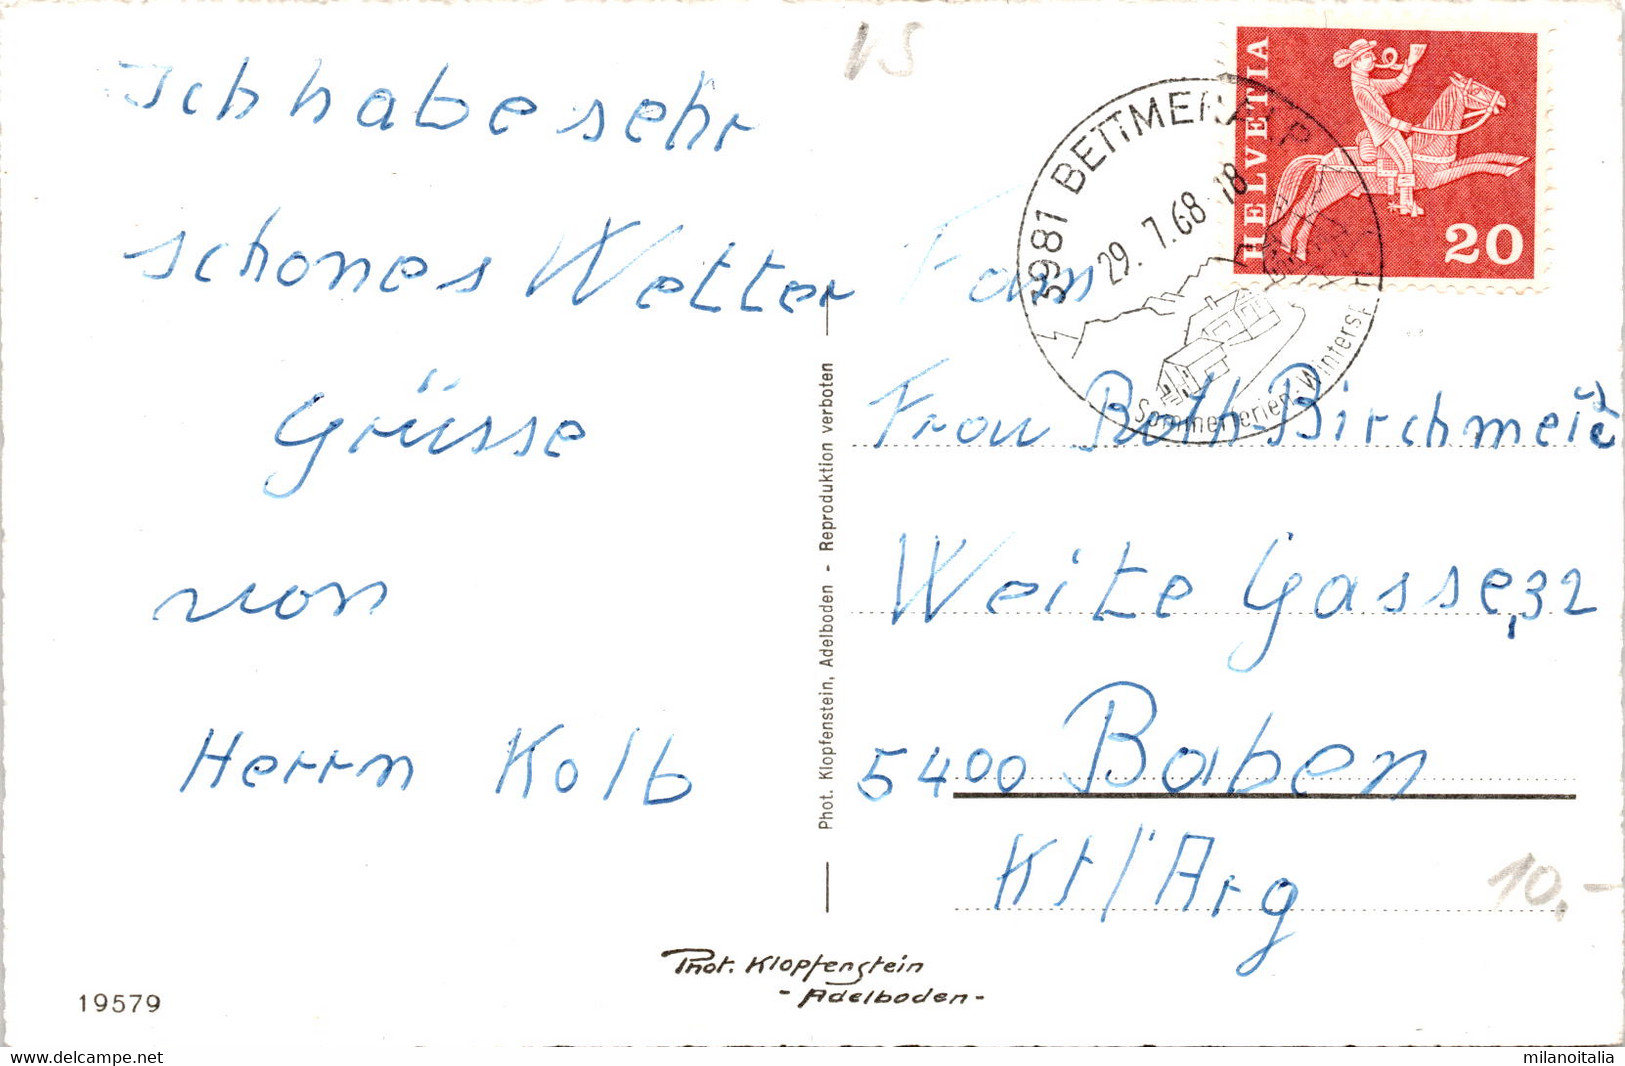 Ich habe sehr
schones Wetter
Grüsse
von
Herrn Kolb
VS
HELVETIA
20
5981 BETTMERALP
29. 7.68 18
Sommerferien - Winters
Fam
Frau Roth-Birchmeie
Weite Gasse,32
5400 Baben
Kt/Arg
10.-
Phot. Klopfenstein, Adelboden - Reproduktion verboten
Phot. Klopfenstein
- Adelboden -
19579
www.delcampe.net
milanoitalia